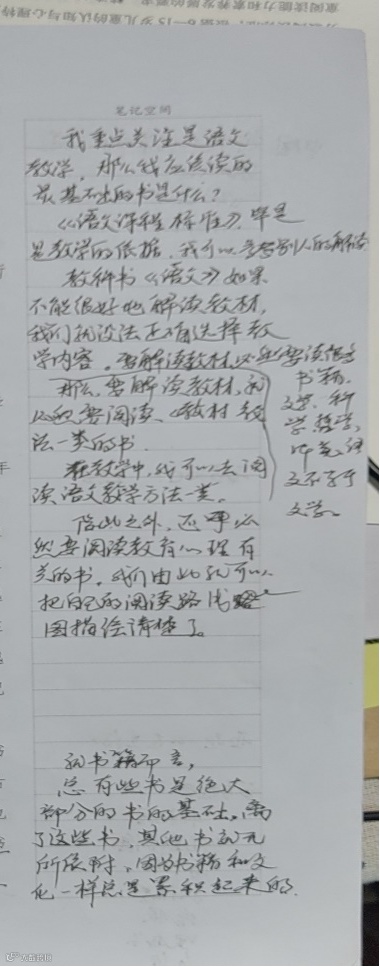 重阅读能力和素养发展的要求
6—15岁儿童的认知与心理特
笔记空间
我重点关注是语文
教学，那么我应该读的
最基础的书是什么？
《语文课程标准》，毕竟
是教学的依据，我可以参考别人的解读
教科书《语文》如果
不能很好地解读教材，
我们就没法正确选择教
学内容。要解读教材必然要读很多
书籍，
文学、科
学、哲学，
毕竟，语
文不等于
文学。
那么，要解读教材，就
必然要阅读《教材教
法》一类的书。
在教学中，我可以去阅
读语文教学方法一类。
除此之外，还必
然要阅读教育心理有
关的书，我们由此就可以
把自己的阅读路线
图描绘清楚了。
就书籍而言，
总有些书是绝大
部分的书的基础，离
了这些书，其他书就无
所依附，因为书籍和文
化一样总是累积起来的。